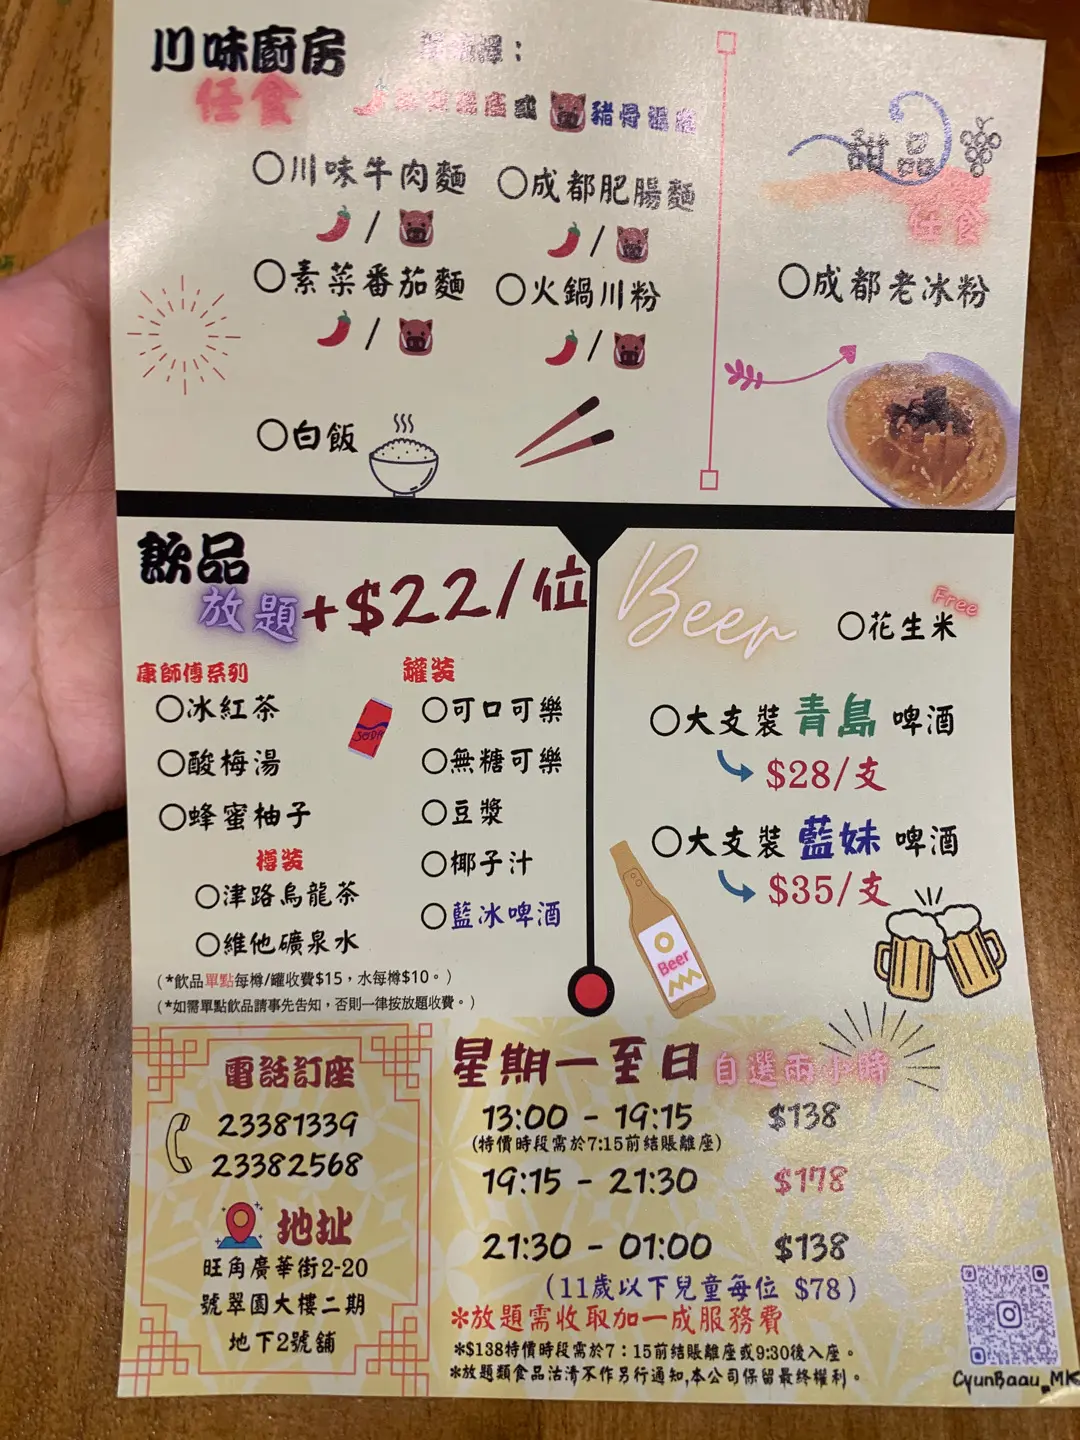 川味廚房
任食
：
或 豬骨湯底
○川味牛肉麵 ○成都肥腸麵
/ /
○素菜番茄麵 ○火鍋川粉
/ /
○白飯
甜品
任食
○成都老冰粉
飲品
放題 +$22/位
康師傅系列
○冰紅茶
○酸梅湯
○蜂蜜柚子
樽裝
○津路烏龍茶
○維他礦泉水
罐裝
SODA
○可口可樂
○無糖可樂
○豆漿
○椰子汁
○藍冰啤酒
(*飲品單點每樽/罐收費$15，水每樽$10。)
(*如需單點飲品請事先告知，否則一律按放題收費。)
Beer
Free
○花生米
○大支裝 青島 啤酒
$28/支
○大支裝 藍妹 啤酒
$35/支
Beer
電話訂座
23381339
23382568
地址
旺角廣華街2-20
號翠園大樓二期
地下2號舖
星期一至日 自選兩小時
13:00 - 19:15 $138
(特價時段需於7:15前結賬離座)
19:15 - 21:30 $178
21:30 - 01:00 $138
(11歲以下兒童每位 $78)
*放題需收取加一成服務費
*$138特價時段需於7：15前結賬離座或9:30後入座。
*放題類食品沽清不作另行通知,本公司保留最終權利。
CyunBaau_MK